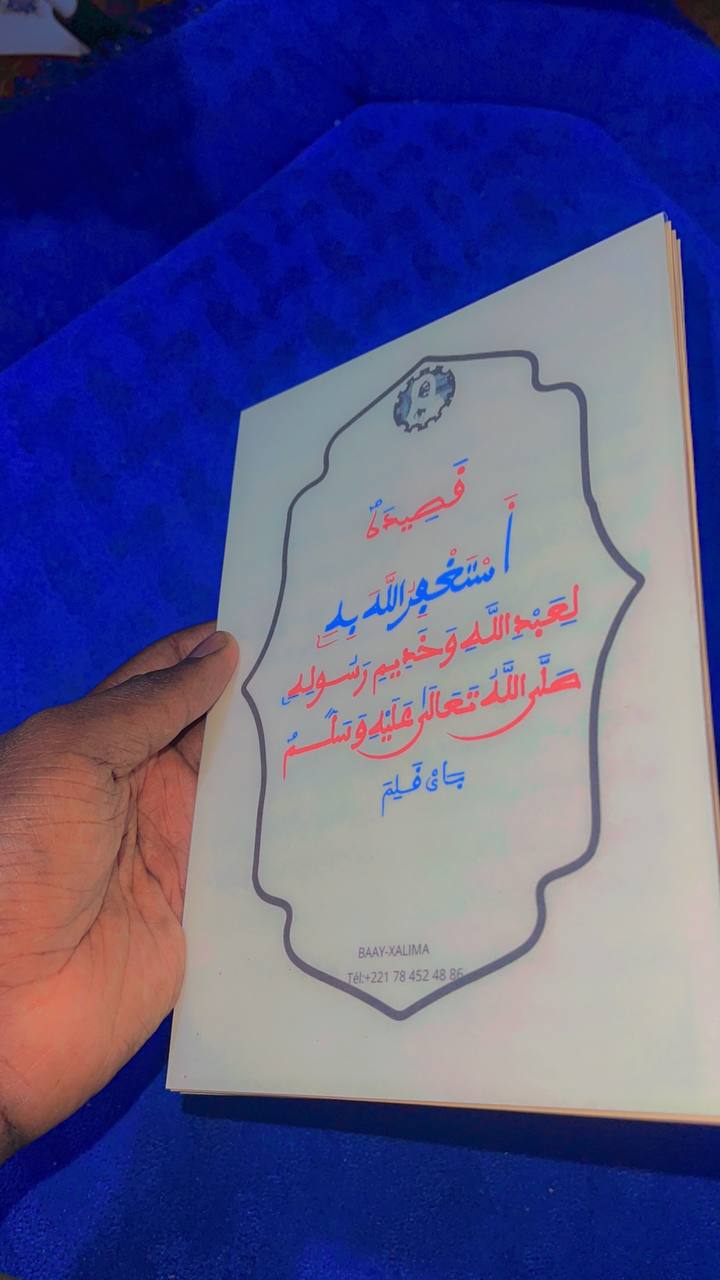 قَصِيدَةُ
أَسْتَغْفِرُ اللَّهَ بِهِ
لِعَبْدِ اللَّهِ وَخَدِيمِ رَسُولِهِ
صَلَّى اللَّهُ تَعَالَى عَلَيْهِ وَسَلَّمَ
بَايْ خَلِمَ
BAAY-XALIMA
Tél:+221 78 452 48 86